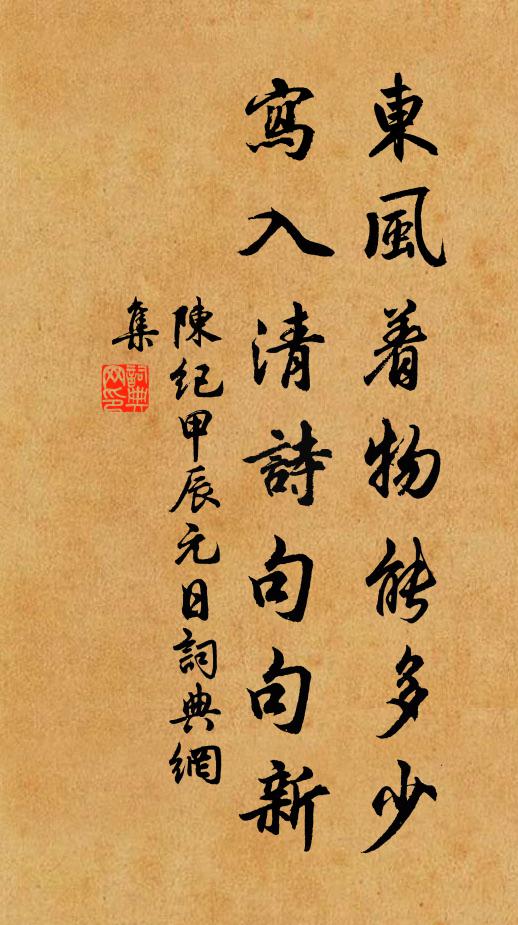 東風着物能多少
寫入清詩句句新
陳紀甲辰元日詞典網
集
詞典網印